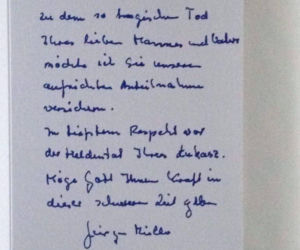 Zu dem so tragischen Tod
Ihres lieben Mannes und Vaters
möchte ich Sie unserer
aufrichten Anteilnahme
versichern.
In tiefstem Respekt vor
der Heldentat Ihres Łukasz.
Möge Gott Ihnen Kraft in
dieser schweren Zeit geben
Jürgen